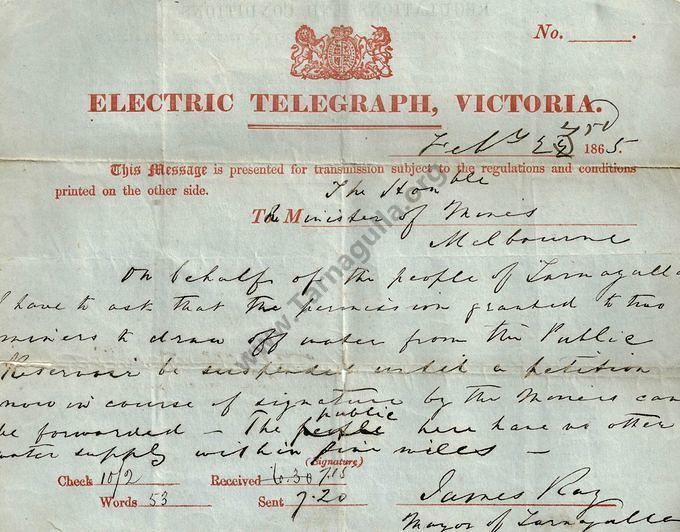 No. ______.
ELECTRIC TELEGRAPH, VICTORIA.
Feby 22 1865.
This Message is presented for transmission subject to the regulations and conditions
printed on the other side.
The Honble
To The Minister of Mines
Melbourne
On behalf of the people of Tarnagulla
I have to ask that the permission granted to two
miners to draw off water from the Public
Reservoir be suspended until a petition
now in course of signature by the Miners can
be forwarded — The people public here have no other
water supply within five miles —
(Signature)
Check 10/2 Received 6.30 7.15
Words 53 Sent 7.20 James Ray
Mayor of Tarnagulla
www.Tarnagulla.org